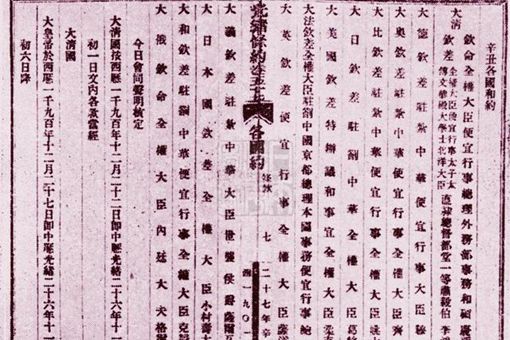 辛丑各國和約
大清
欽命全權大臣便宜行事總理外務部事務和碩慶
欽差全權大臣便宜行事太子太
傅文華殿大學士北洋大臣
直隸總督部堂一等肅毅伯李
大德欽差駐紮中華便宜行事大臣穆
大奧欽差駐紮中華便宜行事全權大臣齊
大比欽差駐紮中華便宜行事全權大臣姚
大日欽差駐劄中華全權大臣葛
大美國欽差特辦議和事宜全權大臣柔
大法欽差全權大臣駐劄中國京都總理本國事務便宜行事鮑
大英欽差便宜行事全權大臣薩
光緒條約卷五十
各國約
七
二十七年辛
西一九〇
大義欽差駐劄中華大臣世襲侯爵薩爾瓦
大日本國欽差全權大臣小村壽
大和欽差駐劄中華便宜行事全權大臣克
大俄欽命全權大臣內廷大夫格爾
今日會同聲明核定
大清國按西歷一千九百年十二月二十二日即中歷光緒二十六年十一
初一日文內各款當經
大清國
大皇帝於西歷一千九百年十二月二十七日即中歷光緒二十六年十一
初六日降